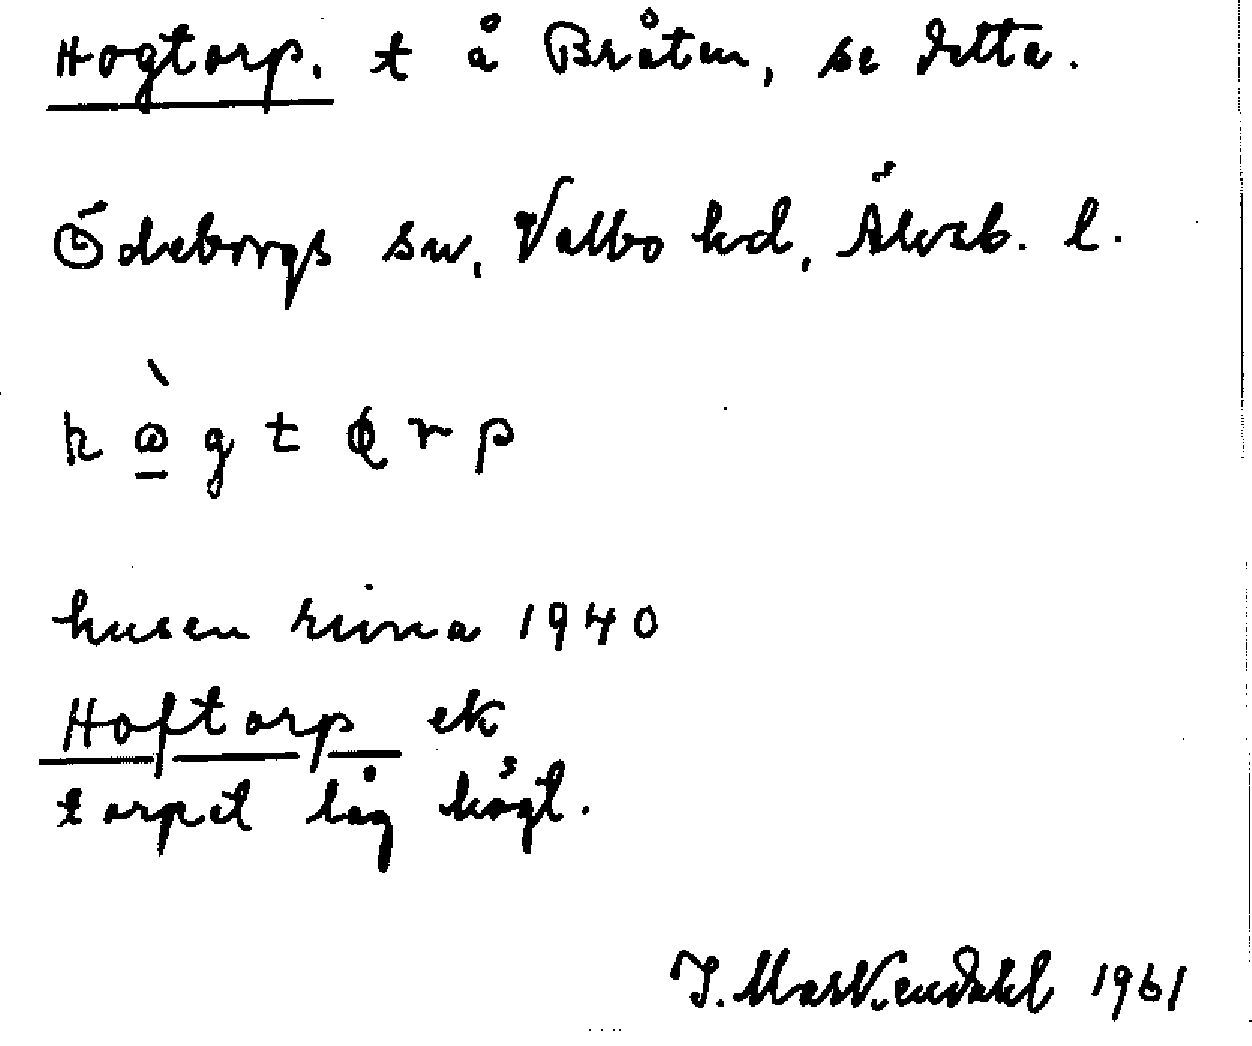 Hogtorp. t å Bråten, se detta.
Ödeborgs sn, Valbo hd, Älvsb. l.
husen rivna 1940
Hoftorp ek
torpet låg högt.
J. Markendahl 1961